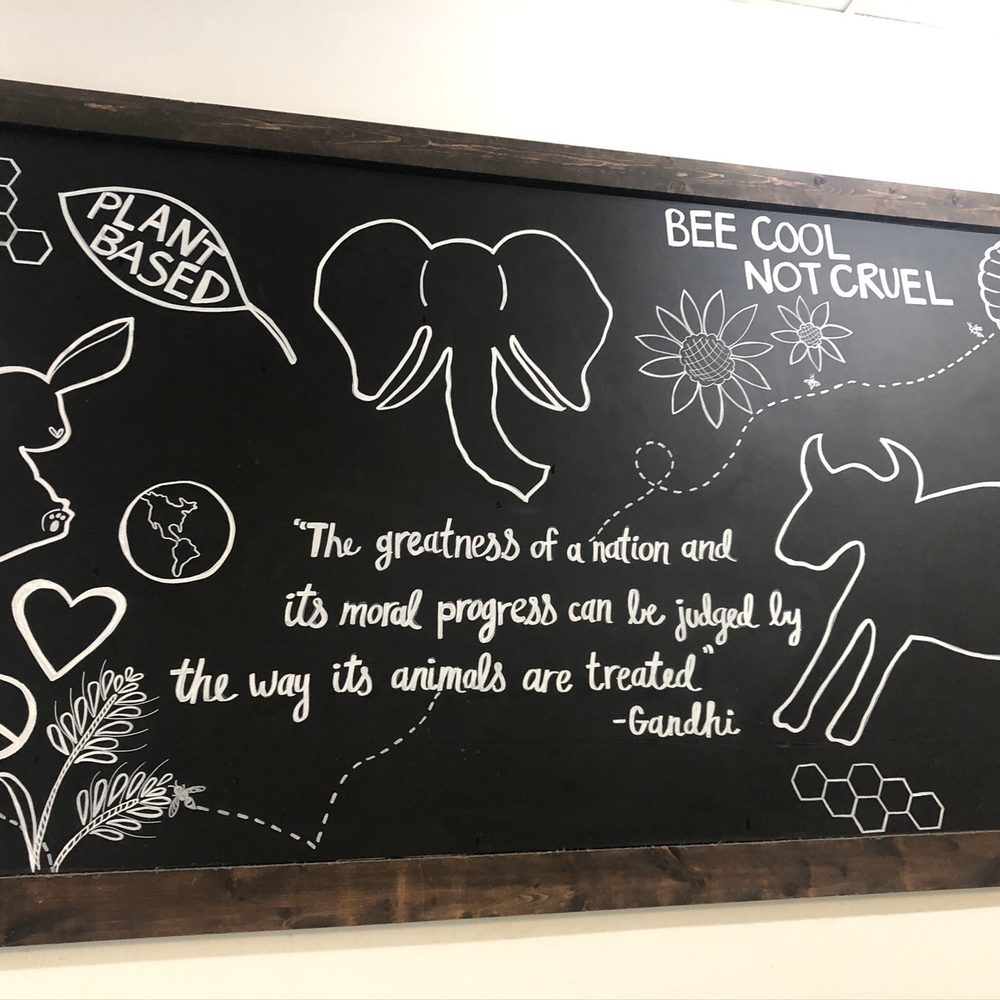 PLANT
BASED
BEE COOL
NOT CRUEL
"The greatness of a nation and
its moral progress can be judged by
the way its animals are treated"
-Gandhi